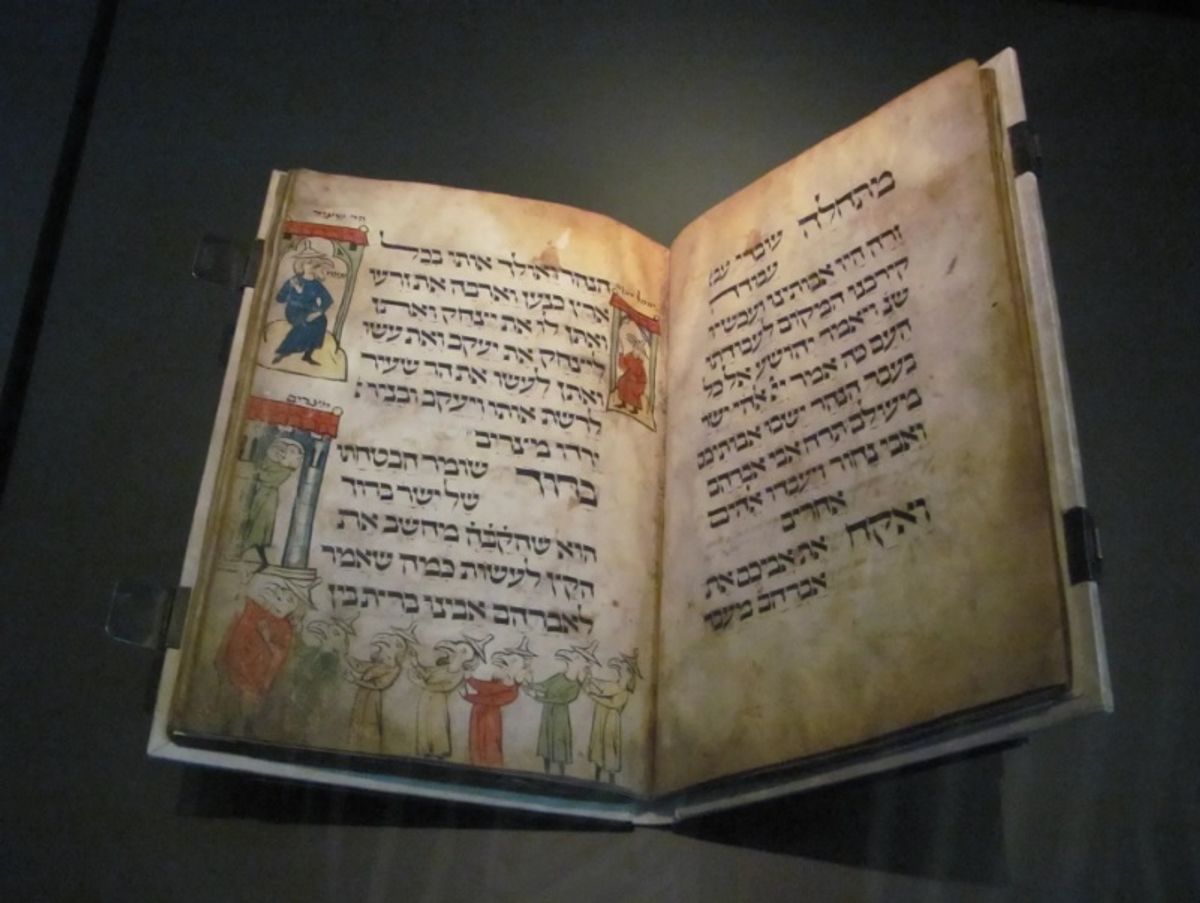 מתחלה עובדי עבו
עבודה
זרה היו אבותינו ועכשיו
קירבנו המקום לעבודתו
שנ ויאמר יהושע אל כל
העם כה אמר יי אלהי ישר
בעבר הנהר ישבו אבותיכם
מעולם תרח אבי אברהם
ואבי נחור ויעבדו אלהים
אחרים
ואקח את אביכם את
אברהם מעבר
הר שעיר
הנהר ואולך אותו בכל
ארץ כנען וארבה את זרעו
ואתן לו את יצחק ואתן
ליצחק את יעקב ואת עשו
ואתן לעשו את הר שעיר
לרשת אותו ויעקב ובניו
ירדו מצרים
מצרים
ברוך שומר הבטחתו
של ישר ברוך
הוא שהקבה מחשב את
הקץ לעשות כמה שאמר
לאברהם אבינו ברית בין